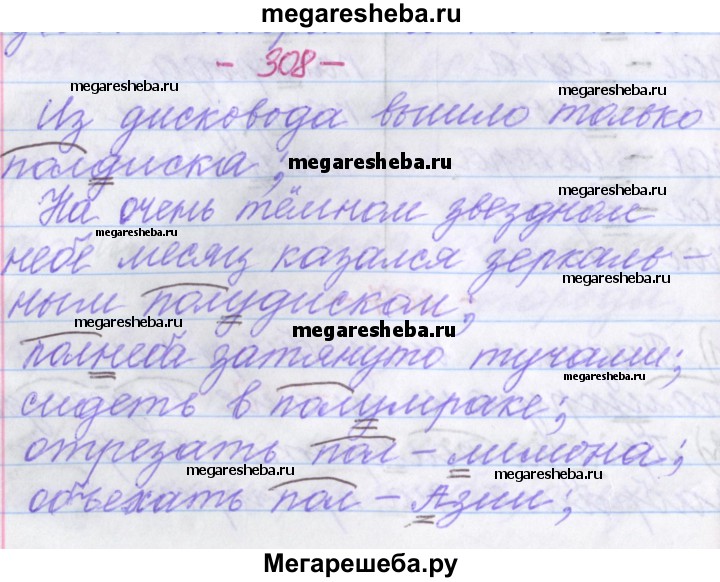 megaresheba.ru
- 308 -
megaresheba.ru
Из дисковода вышло только
полдиска;
megaresheba.ru
На очень тёмном звездном
megaresheba.ru
небе месяц казался зеркаль-
megaresheba.ru
ным полудиском;
megaresheba.ru
megaresheba.ru
полнеба затянуто тучами;
megaresheba.ru
сидеть в полумраке;
megaresheba.ru
отрезать пол-лимона;
megaresheba.ru
megaresheba.ru
объехать пол-Азии;
Мегарешеба.ру